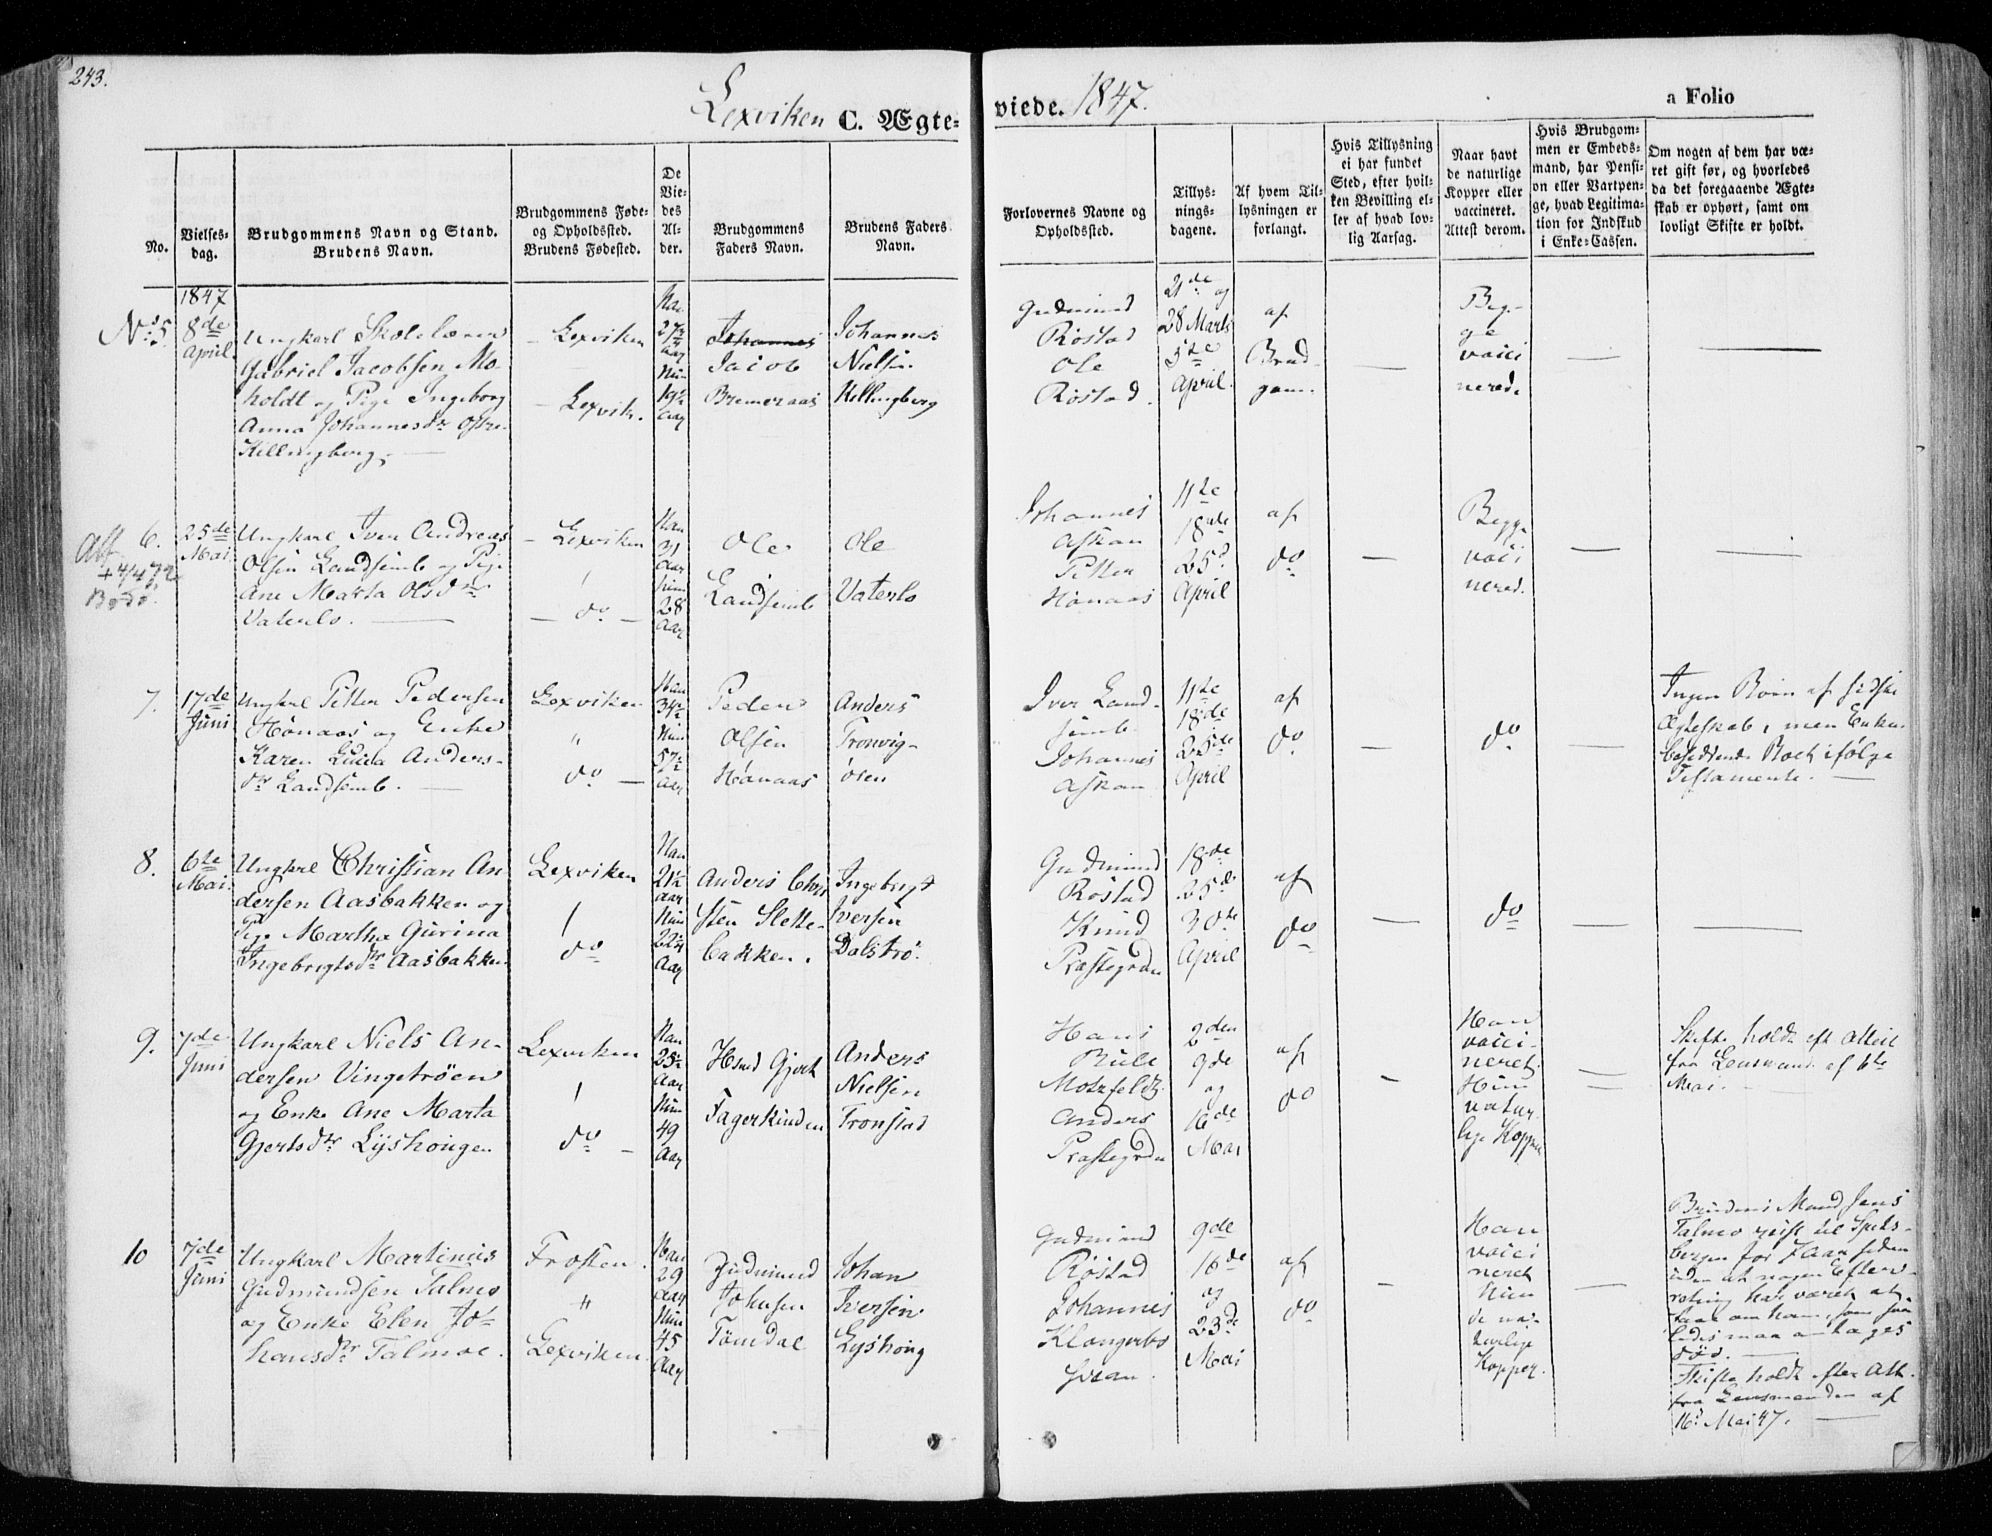 243.
Lexviken C. Ægte-
viede. 1847.
a Folio
No.
Vielses-
dag.
Brudgommens Navn og Stand.
Brudens Navn.
Brudgommens Føde-
og Opholdssted.
Brudens Fødested.
De
Vie-
des
Al-
der.
Brudgommens
Faders Navn.
Brudens Faders
Navn.
Forlovernes Navne og
Opholdssted.
Tillys-
nings-
dagene.
Af hvem Til-
lysningen er
forlangt.
Hvis Tillysning
ei har fundet
Sted, efter hvil-
ken Bevilling el-
ler af hvad lov-
lig Aarsag.
Naar havt
de naturlige
Kopper eller
vaccineret.
Attest derom.
Hvis Brudgom-
men er Embeds-
mand, har Pensi-
on eller Vartpen-
ge, hvad Legitima-
tion for Indskud
i Enke-Cassen.
Om nogen af dem har væ-
ret gift før, og hvorledes
da det foregaaende Ægte-
skab er ophørt, samt om
lovligt Skifte er holdt.
1847
No 5.
8de
April
Ungkarl Skolelærer
Gabriel Jacobsen Mo-
holdt og Pige Ingeborg
Anna Johannesdr Østre
Killingberg.
Lexviken
Lexvik.
Johannes
Jacob
Bremeraas
Johannes
Nielsen
Killingberg
Gudmund
Røstad
Ole
Røstad.
21de og
28 Marts
5te
April.
af
Brud-
gom.
Beg-
ge
vacci
nerede
6.
25de
Mai
Ungkarl Iver Andreas
Olsen Landsemb og Pige
Ane Marta Olsdr
Vaterlo.
Lexviken
do
Han
31
Aar
Hun
28
Aar
Ole
Landsemb
Ole
Vaterlo
Johannes
Askan
Petter
Hønaas
11te
18de
25d
April
af
do
Begge
vacci
nered.
7.
17de
Juni
Ungkarl Petter Pedersen
Hønaas og Enke
Karen Lucia Anders-
dr Landsemb.
Lexviken
"
do
Peder
Olsen
Hønaas
Anders
Tronvig-
øien
Iver Land-
semb
Johannes
Askan
11te
18de
25de
April
af
do
do
Ingen Børn af sidste
Ægteskab, men Enken
besiddende Boet ifølge
Testamente.
8.
6te
Mai.
Ungkarl Christian An
dersen Aasbakken og
Pige Martha Gurina
Ingebrigtsdr Aasbakken
Lexviken
do
Han
21½
Aar
Hun
Aar
Anders Chri
sten Slette-
bakken.
Ingebrigt
Iversen
Dalstrø.
Gudmund
Røstad
Knud
Præstegrdn
18de
25de
30te
April
af
do
do
9.
7de
Juni
Ungkarl Niels An-
dersen Vingetrøen
og Enke Ane Marta
Gjertsdr Lyshougen
Lexviken
do
Han
Aar
Hun
49
Aar
Fagerlinden
Anders
Nielsen
Tronstad
Hans
Bull
Motzfeldt
Anders
Præstegrdn
2den
9de
og
16de
Mai
af
do
Han
vacci-
neret.
Hun
natur-
lige Kopper
Skifte holdt eft Attest
fra Lensmand. af 6te
Mai.
10
7de
Juni
Ungkarl Martinus
Gudmundsen Talmo
og Enke Elen Jo-
hansdr Talmoe.
Frosten.
"
Lexviken.
Han
29
Aar
Hun
45
Aar
Gudmund
Johnsen
Tømdal
Johan
Iversen
Lyshoug
Gudmund
Røstad
Johannes
Klangerbo
9de
16de
og
23de
Mai
af
do
Han
vacci
neret
Hun
de na-
turlige
Kopper.
Brudens Mand Jens
Talmo reist til Spits-
bergen for 7 Aar siden
uden at nogen Efter-
retning har været at
faae om ham, som saa-
ledes maa antages
død.
Skifte holdt efter Att.
fra Lensmanden af
16d Mai 47.